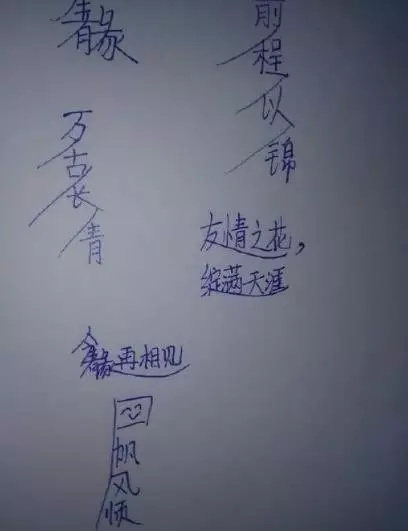 前程似锦
万古长青
友情之花，
绽满天涯
再相见
帆风顺